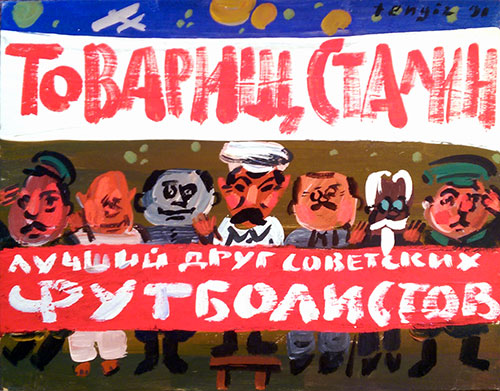 tengiz
ТОВАРИЩ СТАЛИН
ЛУЧШИЙ ДРУГ СОВЕТСКИХ
ФУТБОЛИСТОВ